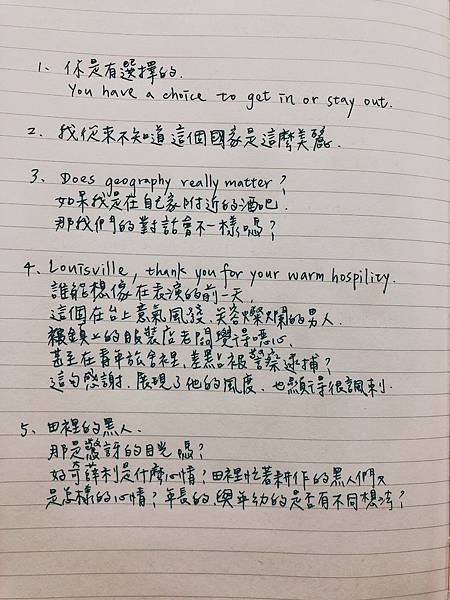 1、你是有選擇的.
You have a choice to get in or stay out.
2、我從來不知道這個國家是這麼美麗.
3、Does geography really matter?
如果我是在自己家附近的酒吧.
那我們的對話會不一樣嗎?
4、Louisville, thank you for your warm hospility.
誰能想像在表演的前一天,
這個在台上意氣風發、笑容燦爛的男人.
被鎮上的服裝店老闆覺得噁心,
甚至在青年旅舍裡、差點被警察逮捕?
這句感謝.展現了他的風度.也顯得很諷刺.
5、田裡的黑人.
那是驚訝的目光嗎?
好奇薛利是什麼心情?田裡忙著耕作的黑人們又
是怎樣的心情?年長的、與年幼的是否有不同想法?